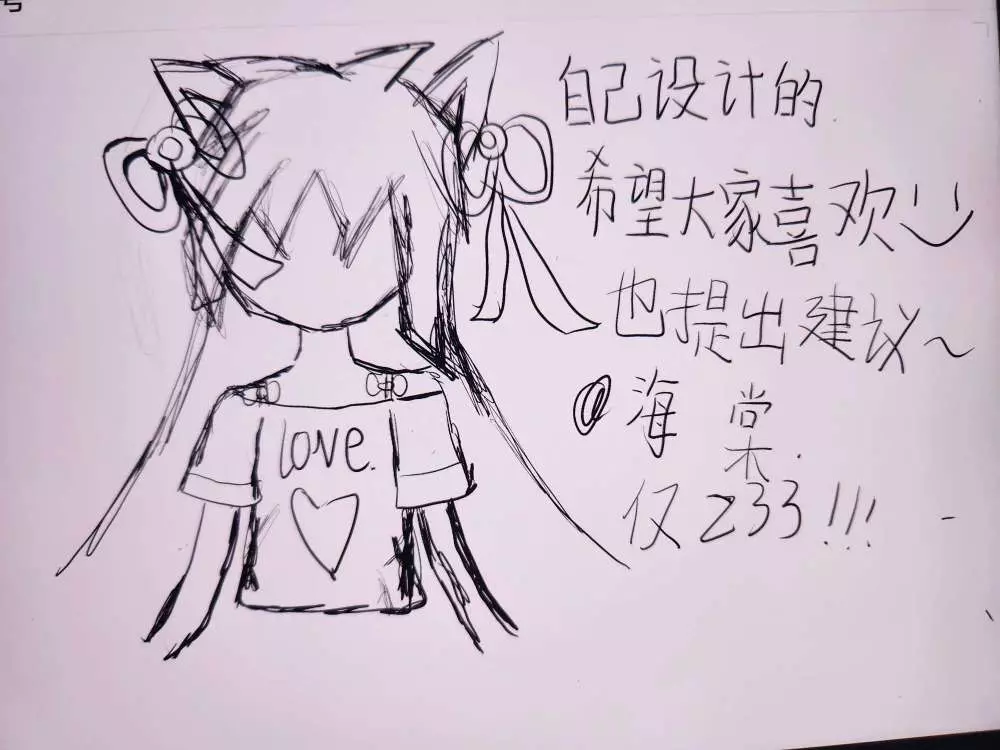 号
自己设计的.
希望大家喜欢
也提出建议~
@海棠.
仅233!!!
love.